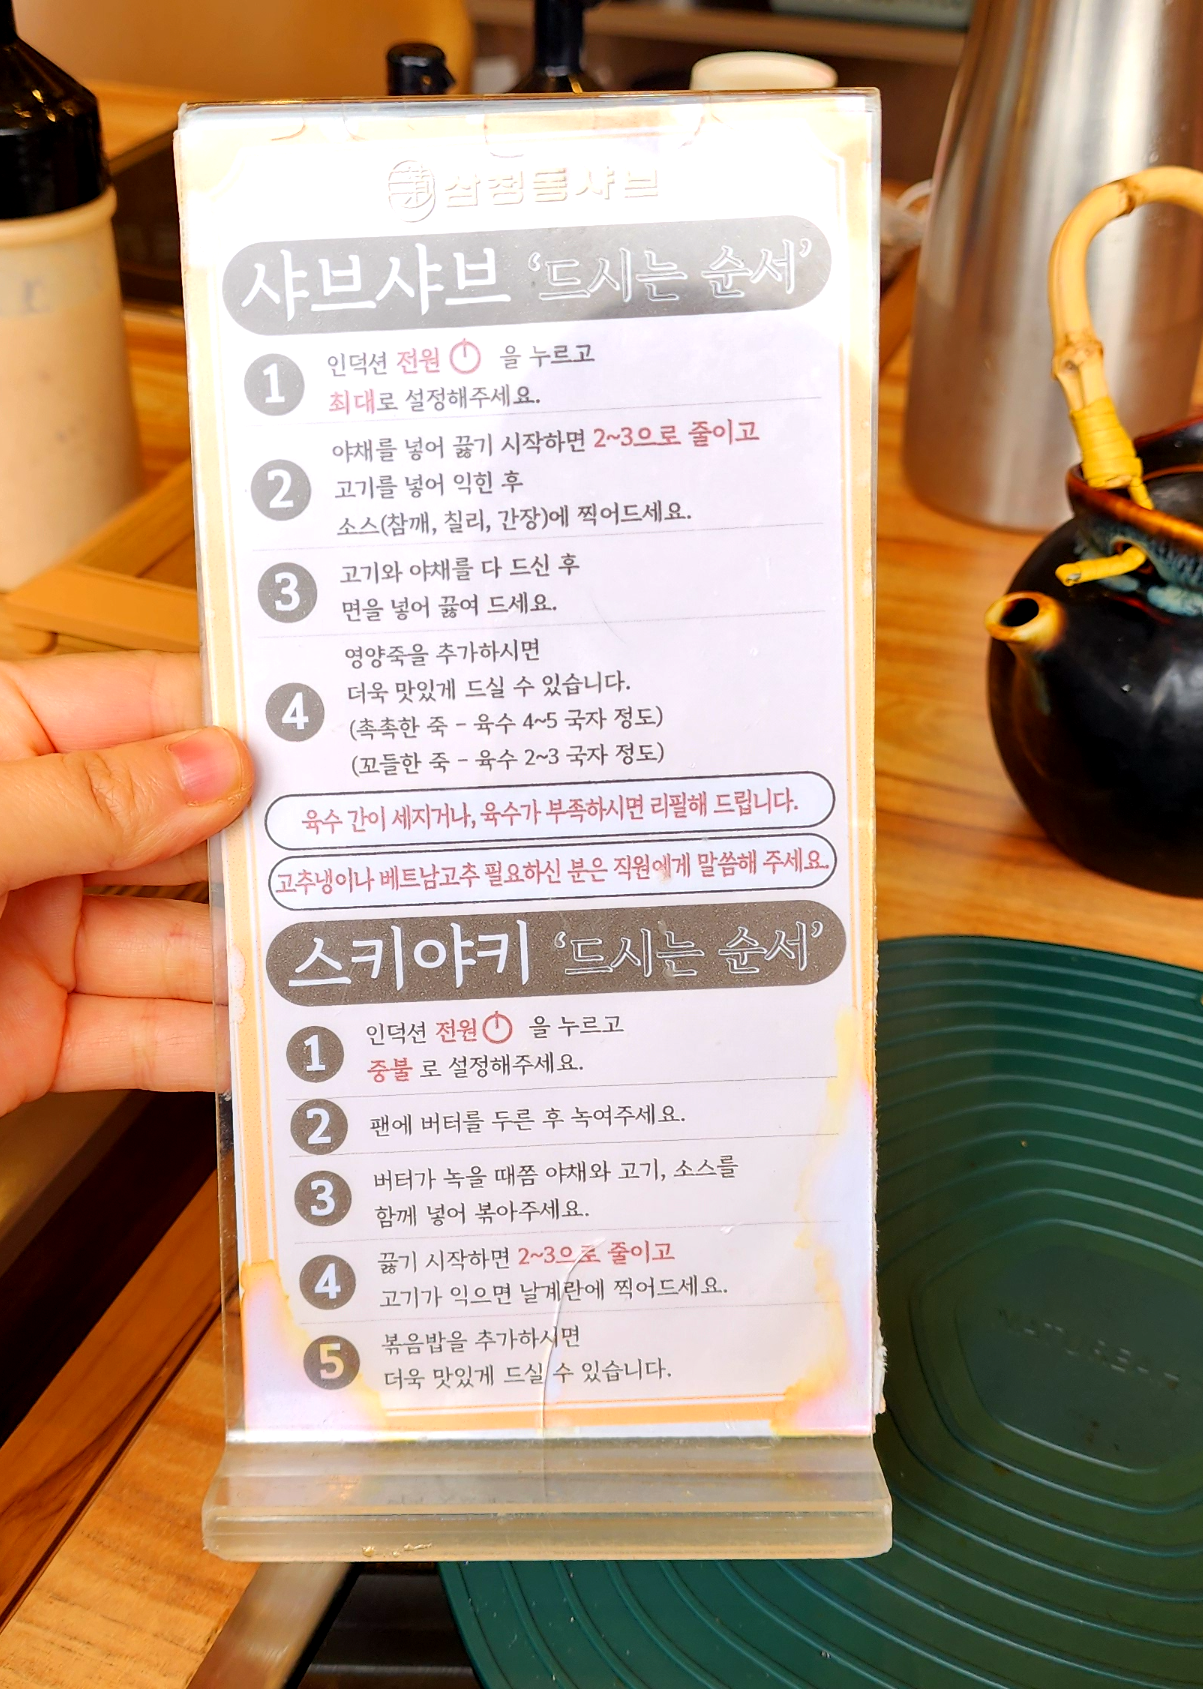 삼청동샤브
샤브샤브 '드시는 순서'
1 인덕션 전원 을 누르고
최대로 설정해주세요.
2 야채를 넣어 끓기 시작하면 2~3으로 줄이고
고기를 넣어 익힌 후
소스(참깨, 칠리, 간장)에 찍어드세요.
3 고기와 야채를 다 드신 후
면을 넣어 끓여 드세요.
4 영양죽을 추가하시면
더욱 맛있게 드실 수 있습니다.
(촉촉한 죽 - 육수 4~5 국자 정도)
(꼬들한 죽 - 육수 2~3 국자 정도)
육수 간이 세지거나, 육수가 부족하시면 리필해 드립니다.
고추냉이나 베트남고추 필요하신 분은 직원에게 말씀해 주세요.
스키야키 '드시는 순서'
1 인덕션 전원 을 누르고
중불 로 설정해주세요.
2 팬에 버터를 두른 후 녹여주세요.
3 버터가 녹을 때쯤 야채와 고기, 소스를
함께 넣어 볶아주세요.
4 끓기 시작하면 2~3으로 줄이고
고기가 익으면 날계란에 찍어드세요.
5 볶음밥을 추가하시면
더욱 맛있게 드실 수 있습니다.